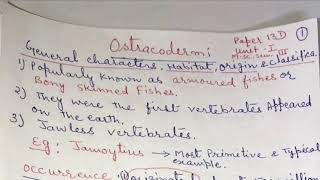 Ostracodermi
Paper 13D
Unit - I
M.Sc. Sem. III
1
General characters, Habitat, Origin & Classifica.
1) Popularly known as armoured fishes or
Bony Skinned Fishes.
2) They were the first vertebrates Appeared
on the earth.
3) Jawless vertebrates.
Eg: Jamoytius → Most Primitive & Typical
example.
Occurrence